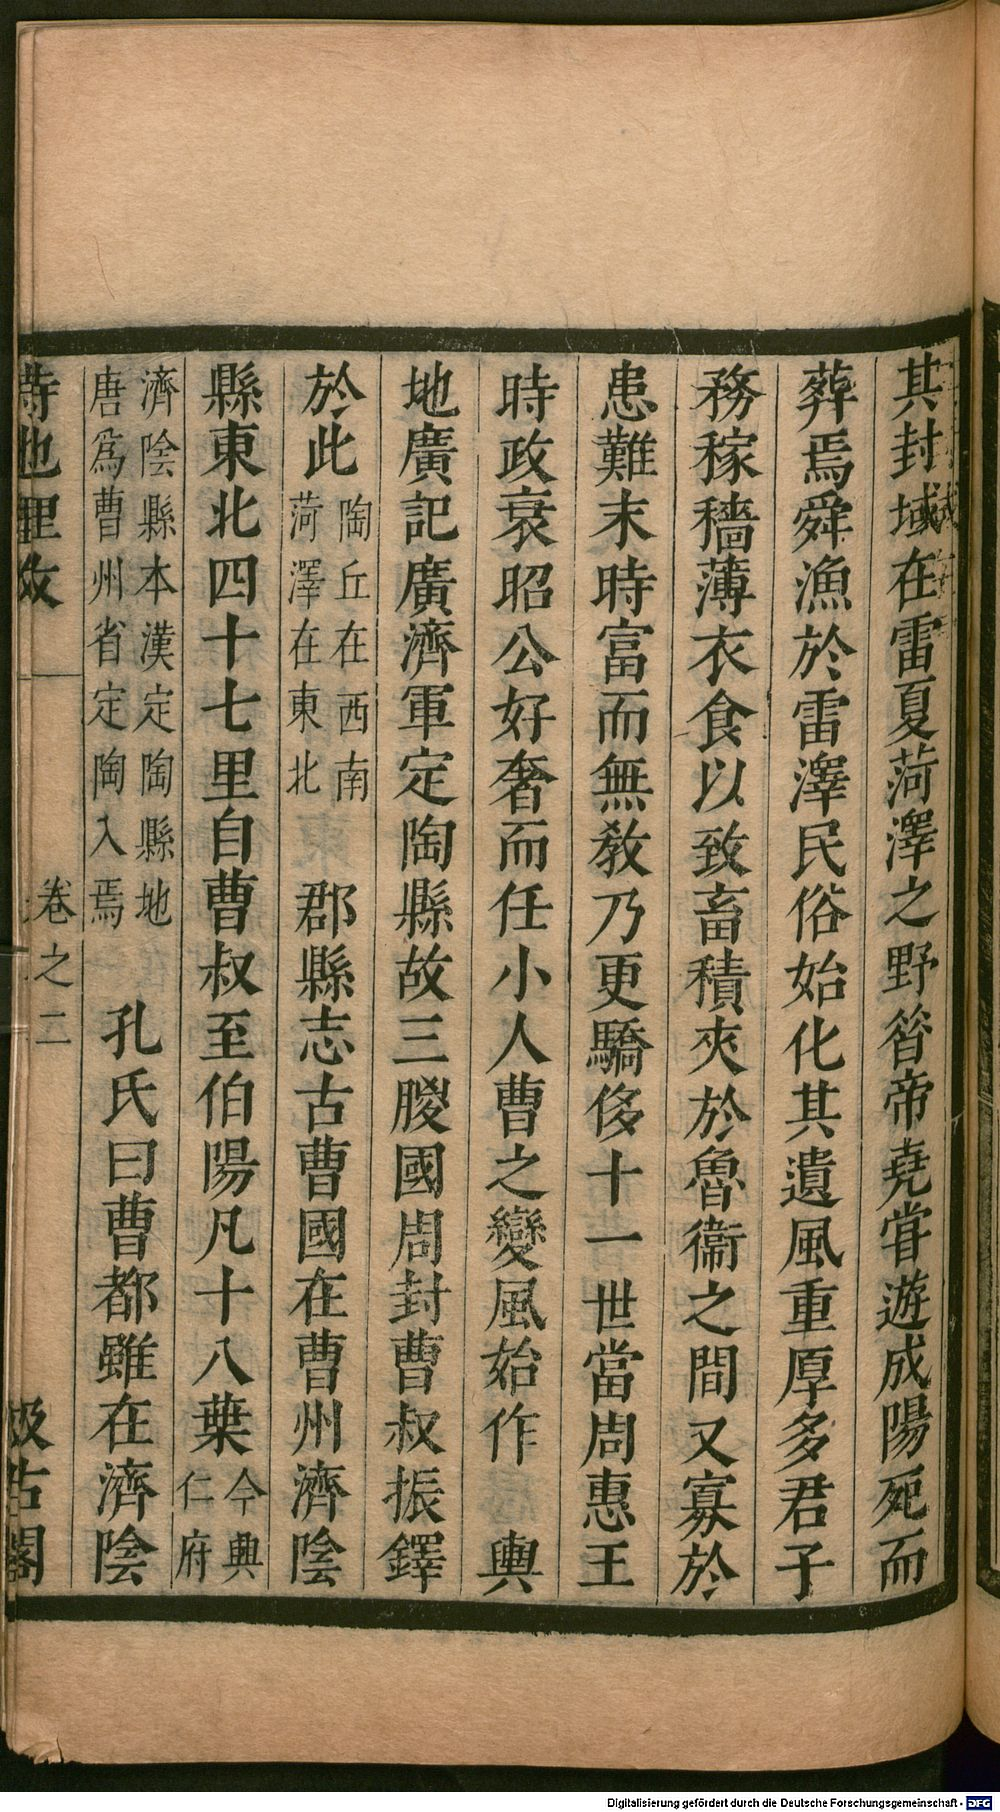 其封域在雷夏菏澤之野昝帝堯甞遊成陽死而
葬焉舜漁於雷澤民俗始化其遺風重厚多君子
務稼穡薄衣食以致畜積夾於魯衞之間又寡於
患難末時富而無教乃更驕侈十一世當周惠王
時政衰昭公好奢而任小人曹之變風始作　輿
地廣記廣濟軍定陶縣故三朡國周封曹叔振鐸
於此陶丘在西南菏澤在東北　郡縣志古曹國在曹州濟陰
縣東北四十七里自曹叔至伯陽凡十八葉今興仁府
濟陰縣本漢定陶縣地唐爲曹州省定陶入焉　孔氏曰曹都雖在濟陰
詩地理攷　卷之二　汲古閣
Digitalisierung gefördert durch die Deutsche Forschungsgemeinschaft - DFG